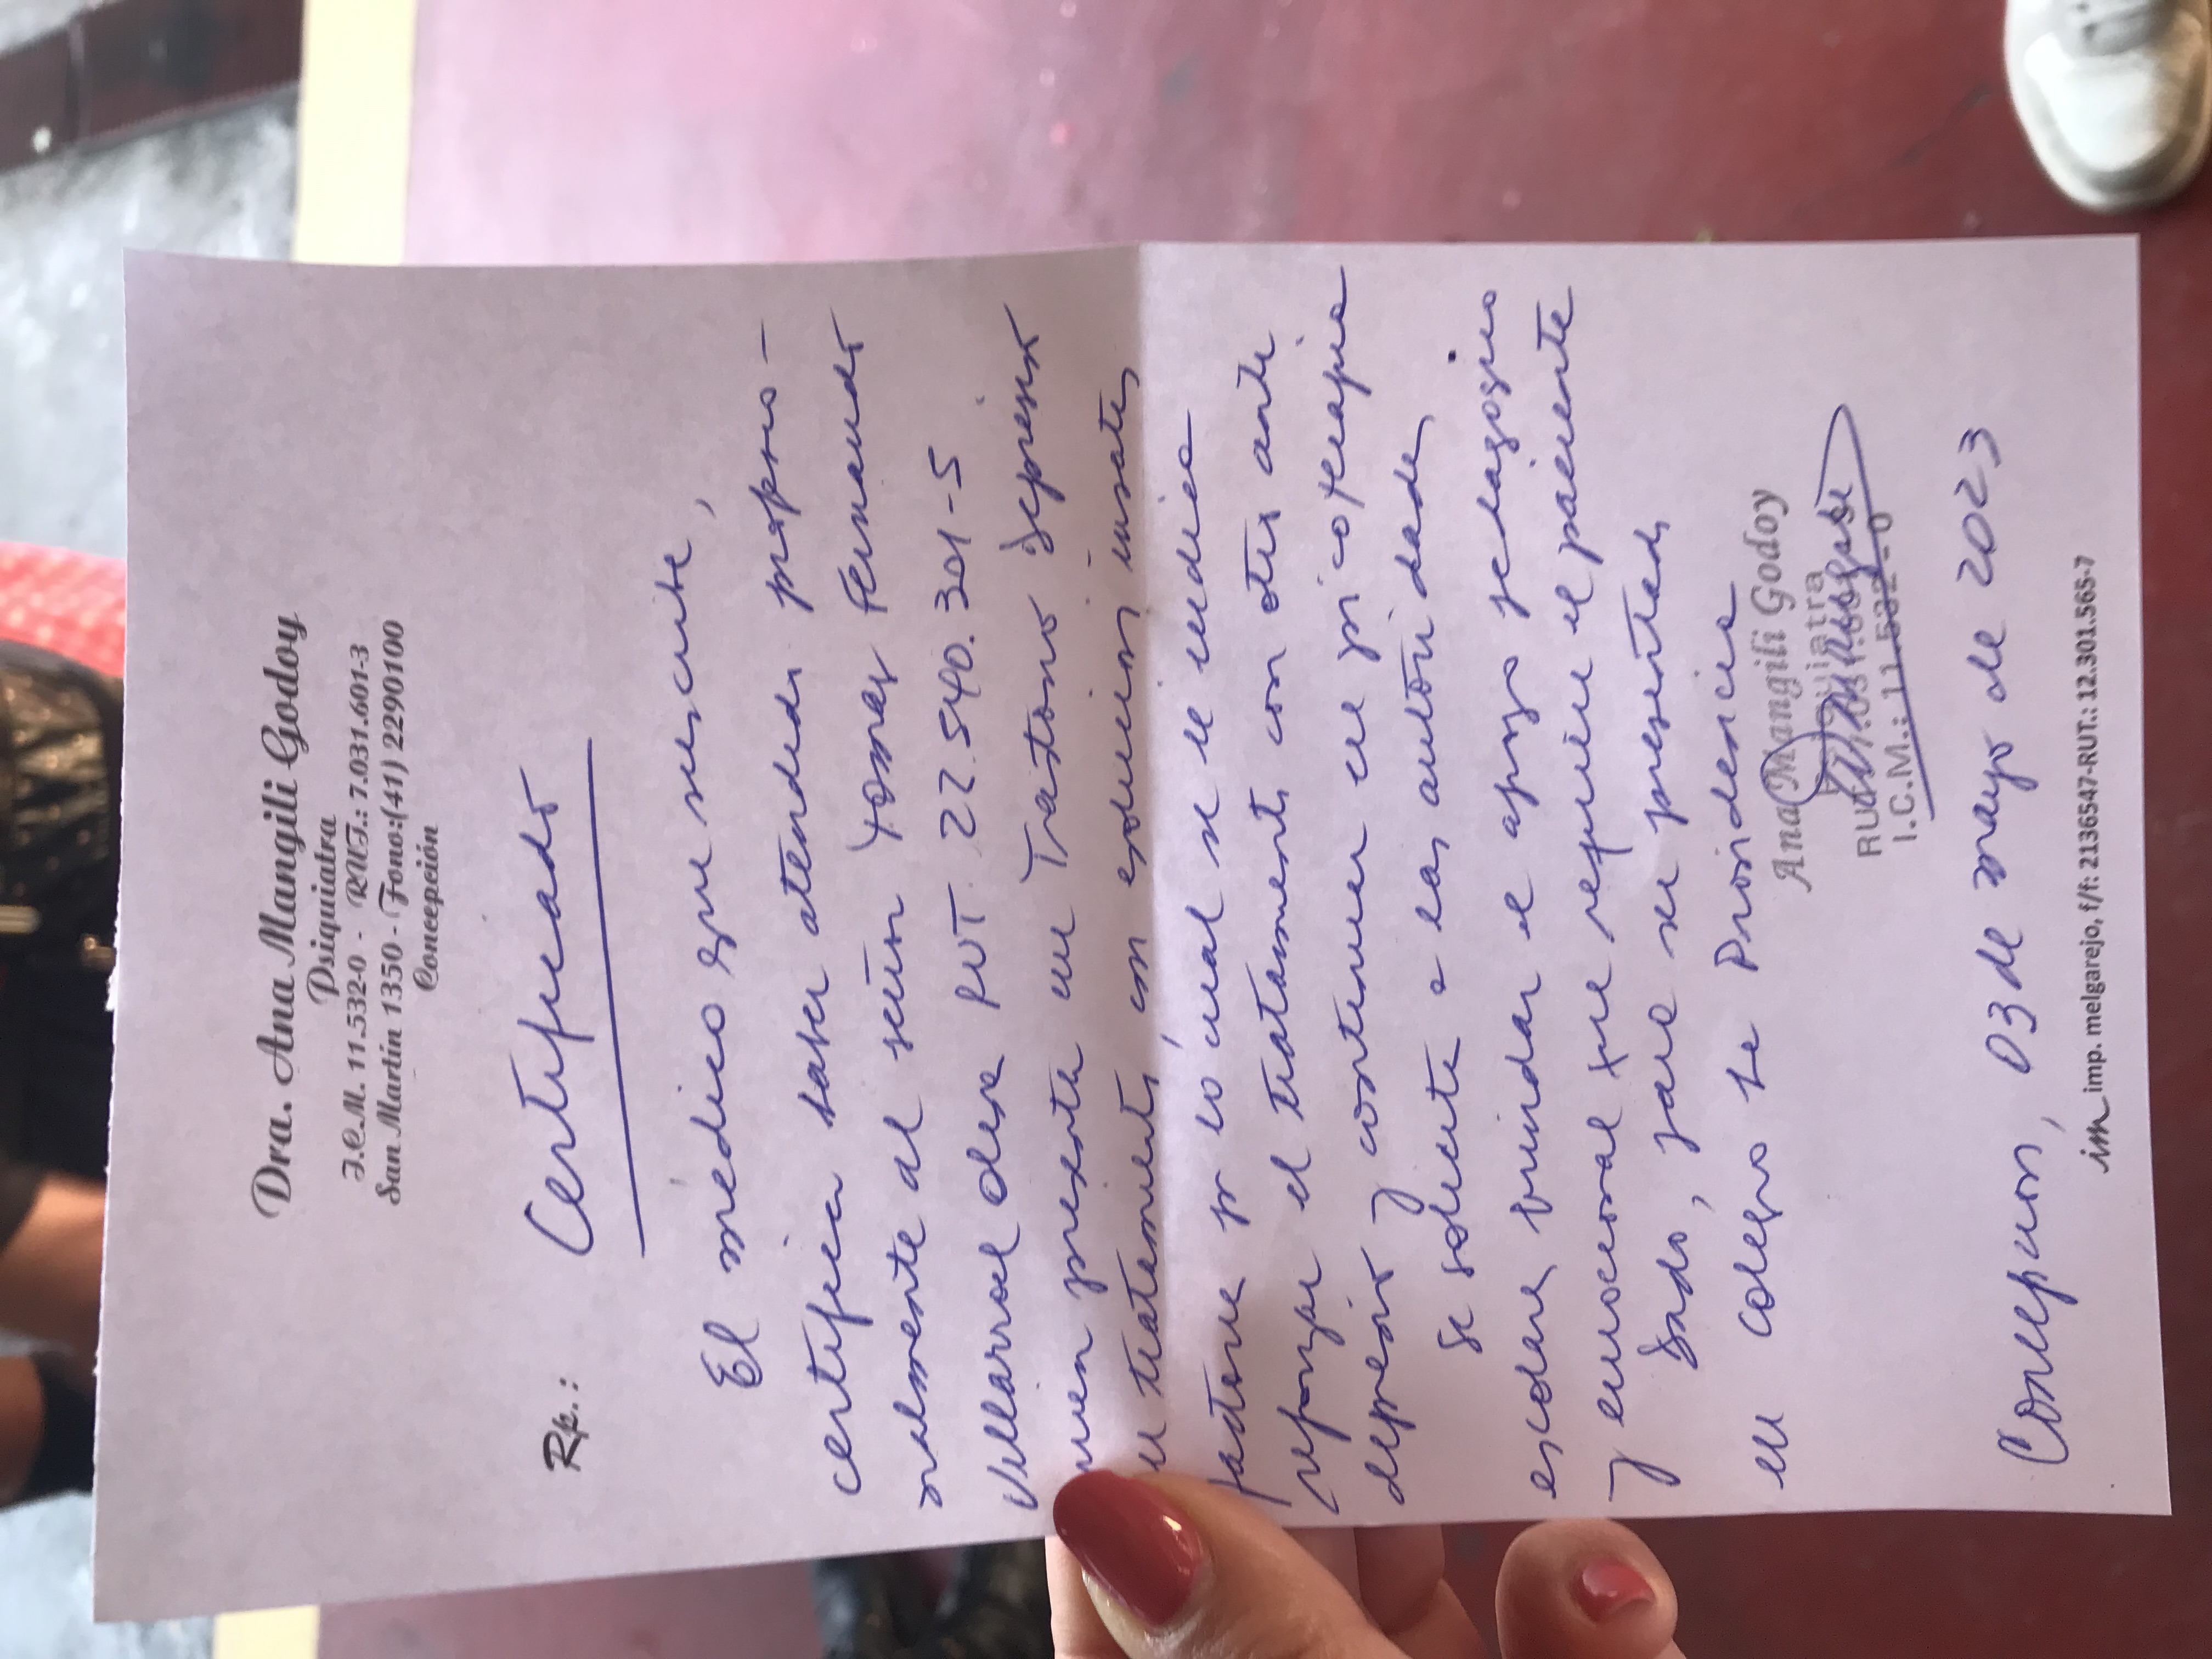 Dra. Ana Mangili Godoy
Psiquiatra
I.C.M. 11.532-0 - RUT.: 7.031.601-3
San Martin 1350 - Fono:(41) 2290100
Concepción
Rp.: Certificado
El médico que suscribe,
certifica haber atendido profesio-
nalmente al señor Tomás Fernando
Villarroel Olea RUT. 22.540.301-5
quien presenta un Trastorno Depresivo
en tratamiento, con evolución
por lo cual se le indica
el tratamiento con otro anti
depresivo y continuar en psicoterapia
Se solicita a las autoridades
escolares brindar el apoyo pedagógico
y emocional que requiere el paciente
Dado, para ser presentado
en Colegio La Providencia
Ana Mangili Godoy
Psiquiatra
I.C.M.: 11.532-0
Concepción, 03 de mayo de 2023
im imp. melgarejo, f/f: 2136547-RUT.: 12.301.565-7